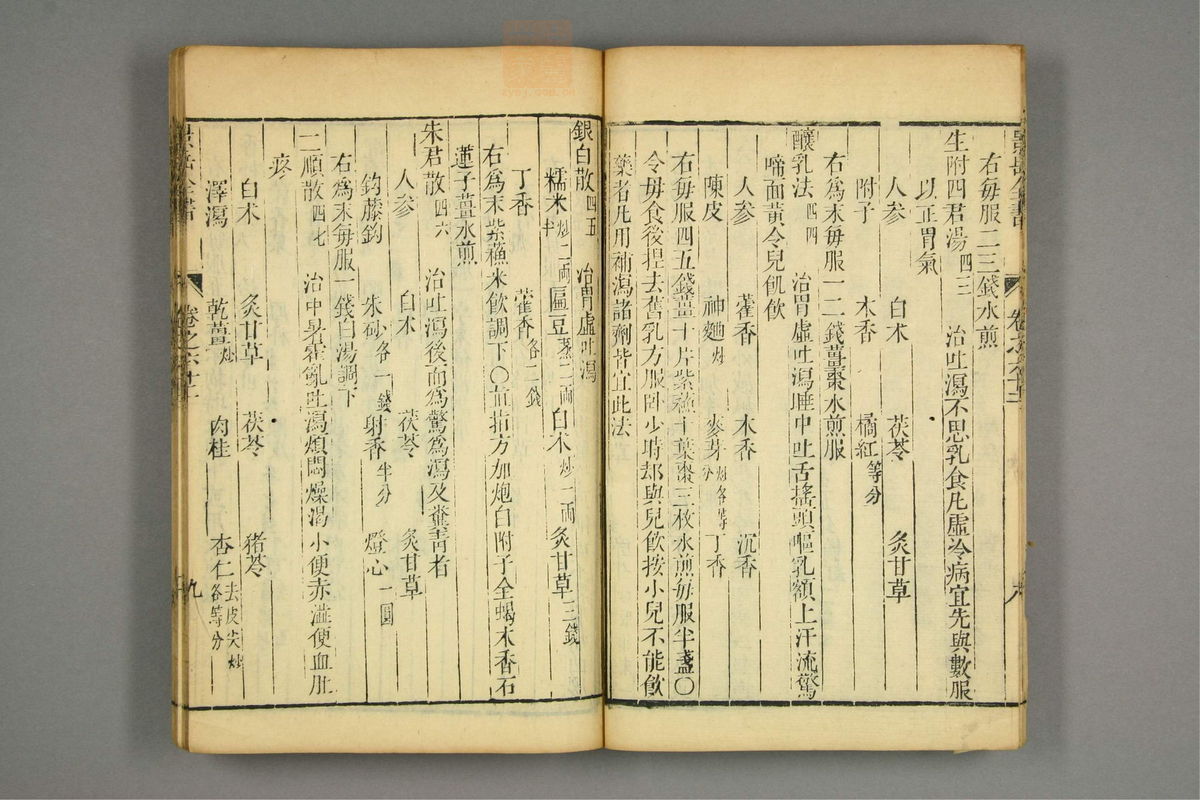 景岳全書
卷之六十二
八
右每服二三錢水煎
生附四君湯四三 治吐瀉不思乳食凡虛冷病宜先與數服
以正胃氣
人參 白术 茯苓 炙甘草
附子 木香 橘紅等分
右為末每服一二錢薑棗水煎服
釀乳法四四 治胃虛吐瀉睡中吐舌搖頭嘔乳額上汗流驚
啼面黃令兒飢飲
人參 藿香 木香 沉香
陳皮 神麯炒 麥芽炒各等分 丁香
右每服四五錢薑十片紫蘇十葉棗三枚水煎每服半盞〇
令毋食後捏去舊乳方服卧少時却與兒飲按小兒不能飲
藥者凡用補瀉諸劑皆宜此法
銀白散四五 治胃虛吐瀉
糯米炒二兩半 扁豆蒸二兩 白术炒一兩 炙甘草三錢
丁香 藿香各二錢
右為末紫蘓米飲調下〇直指方加炮白附子全蝎木香石
蓮子薑水煎
朱君散四六 治吐瀉後而為驚為瀉及糞青者
人參 白术 茯苓 炙甘草
鈎藤鈎 朱砂各一錢 射香半分 燈心一圓
右為末每服一錢白湯調下
二順散四七 治中暑霍亂吐瀉煩悶燥渴小便赤澁便血肚
疼
白术 炙甘草 茯苓 猪苓
澤瀉 乾薑炒 肉桂 杏仁去皮尖炒各等分
景岳全書
卷之六十二
九